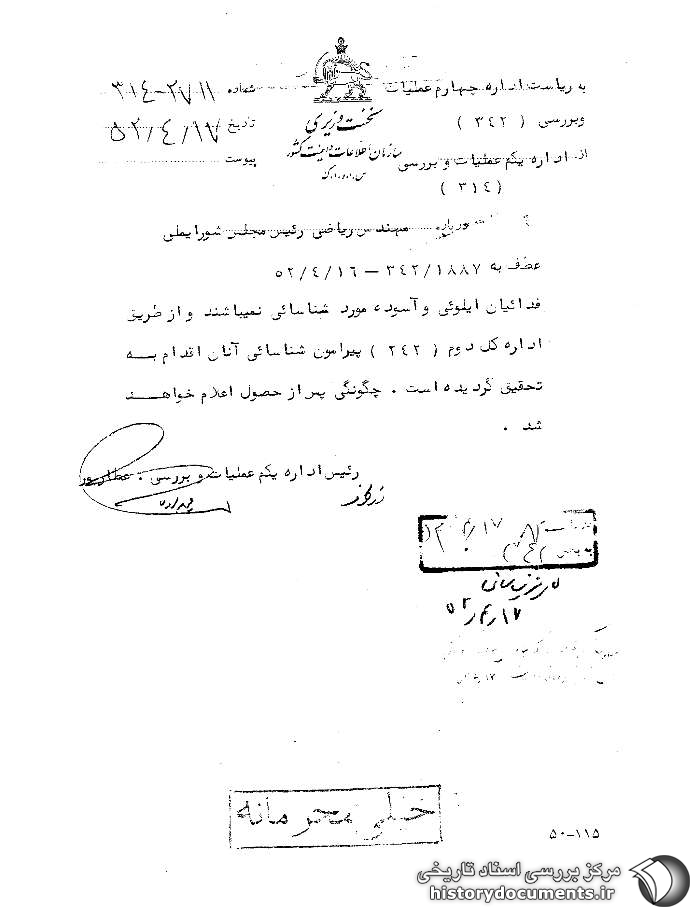 به ریاست اداره چهارم عملیات
وبررسی ( ۳۴۲ )
از اداره یکم عملیات و بررسی
( ۳۱۴ )
نخست وزیری
سازمان اطلاعات و امنیت کشور
س.ا.و.ا.ک
شماره ۳۱۴-۲۷۱۱
تاریخ ۵۲/۴/۱۷
پیوست
درباره مهندس ریاضی رئیس مجلس شورایملی
عطف به ۳۴۲/۱۸۸۷ – ۵۲/۴/۱۶
فدائیان ایلوئی و آسوده مورد شناسائی نمیباشند و از طریق
اداره کل دوم ( ۲۴۲ ) پیرامون شناسائی آنان اقدام به
تحقیق گردیده است . چگونگی پس از حصول اعلام خواهد
شد .
رئیس اداره یکم عملیات و بررسی : عطارپور
به بخش
۵۲/۴/۱۷
خیلی محرمانه
۵۰-۱۱۵
مرکز بررسی اسناد تاریخی
historydocuments.ir